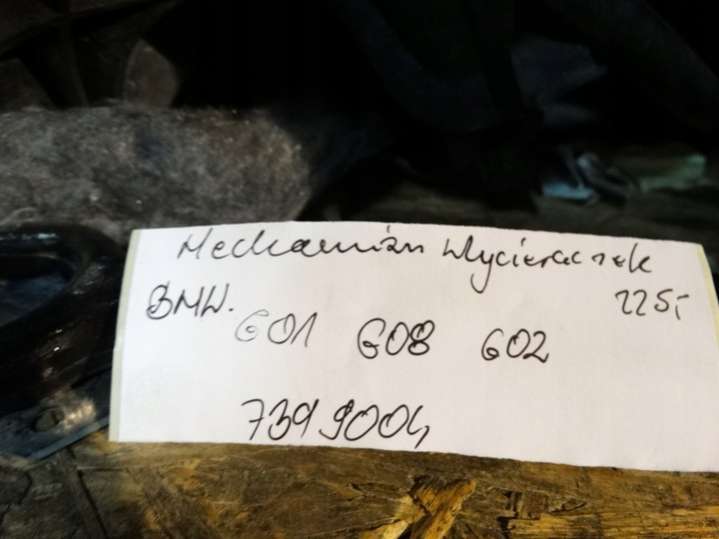 Mechanizm Wycieraczek
BMW. 225,-
G01 G08 G02
7399004